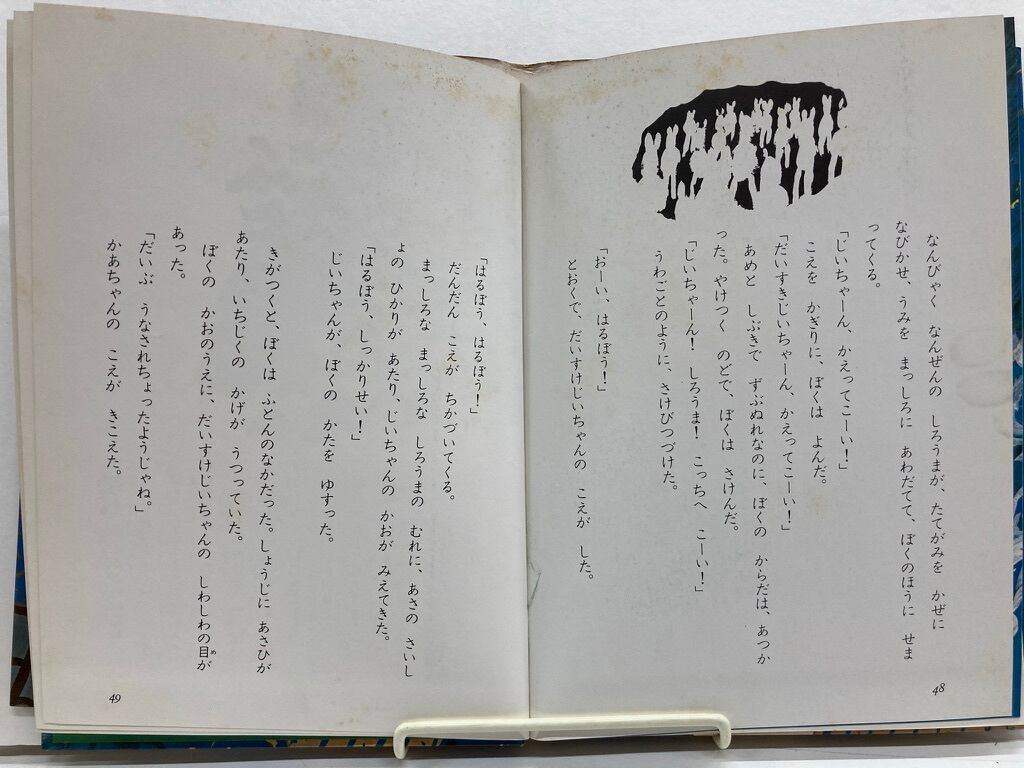 なんびゃく　なんぜんの　しろうまが、たてがみを　かぜに
なびかせ、うみを　まっしろに　あわだてて、ぼくのほうに　せま
ってくる。
「じいちゃーん、かえってこーい！」
こえを　かぎりに、ぼくは　よんだ。
「だいすきじいちゃーん、かえってこーい！」
あめと　しぶきで　ずぶぬれなのに、ぼくの　からだは、あつか
った。やけつく　のどで、ぼくは　さけんだ。
「じいちゃーん！　しろうま！　こっちへ　こーい！」
うわごとのように、さけびつづけた。
「おーい、はるぼう！」
とおくで、だいすけじいちゃんの　こえが　した。
48
「はるぼう、はるぼう！」
だんだん　こえが　ちかづいてくる。
まっしろな　まっしろな　しろうまの　むれに、あさの　さいし
ょの　ひかりが　あたり、じいちゃんの　かおが　みえてきた。
「はるぼう、しっかりせい！」
じいちゃんが、ぼくの　かたを　ゆすった。
きがつくと、ぼくは　ふとんのなかだった。しょうじに　あさひが
あたり、いちじくの　かげが　うつっていた。
ぼくの　かおのうえに、だいすけじいちゃんの　しわしわの目が
め
あった。
「だいぶ　うなされちょったようじゃね。」
かあちゃんの　こえが　きこえた。
49